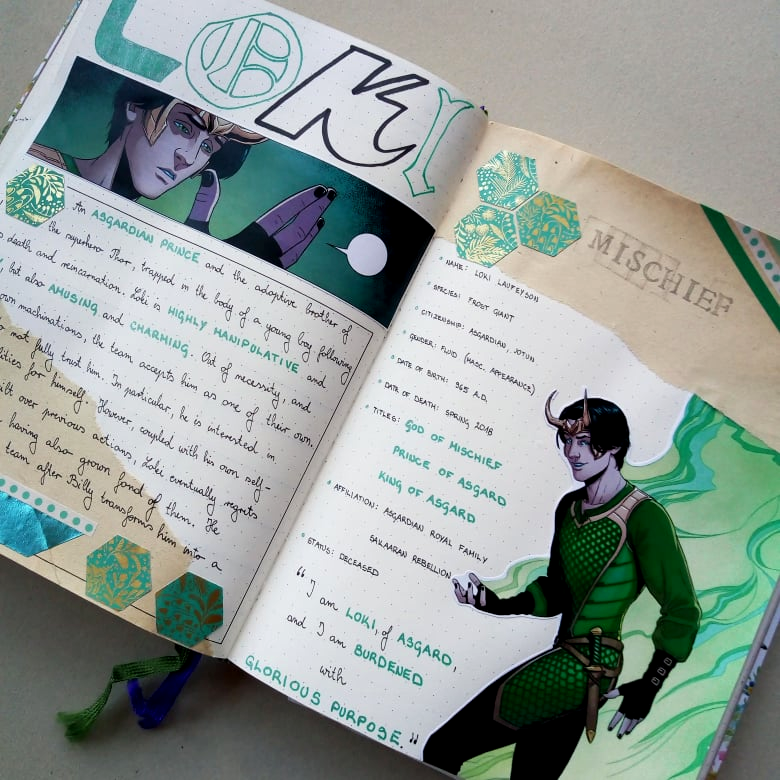 LOKI
An ASGARDIAN PRINCE and the adoptive brother of
the superhero Thor, trapped in the body of a young boy following
death and reincarnation, Loki is HIGHLY MANIPULATIVE and
, but also AMUSING and CHARMING. Out of necessity, and
own machinations, the team accepts him as one of their own,
not fully trust him. In particular, he is interested in
for himself. However, coupled with his own self-
over previous actions, Loki eventually regrets
having also grown fond of them. He
team after Billy transforms him into a
MISCHIEF
NAME: LOKI LAUFEYSON
SPECIES: FROST GIANT
CITIZENSHIP: ASGARDIAN, JOTUN
GENDER: FLUID (MASC. APPEARANCE)
DATE OF BIRTH: 965 A.D.
DATE OF DEATH: SPRING 2018
TITLES: GOD OF MISCHIEF
PRINCE OF ASGARD
KING OF ASGARD
AFFILIATION: ASGARDIAN ROYAL FAMILY
SAKAARAN REBELLION
STATUS: DECEASED
"I am LOKI, of ASGARD,
and I am BURDENED
with
GLORIOUS PURPOSE."